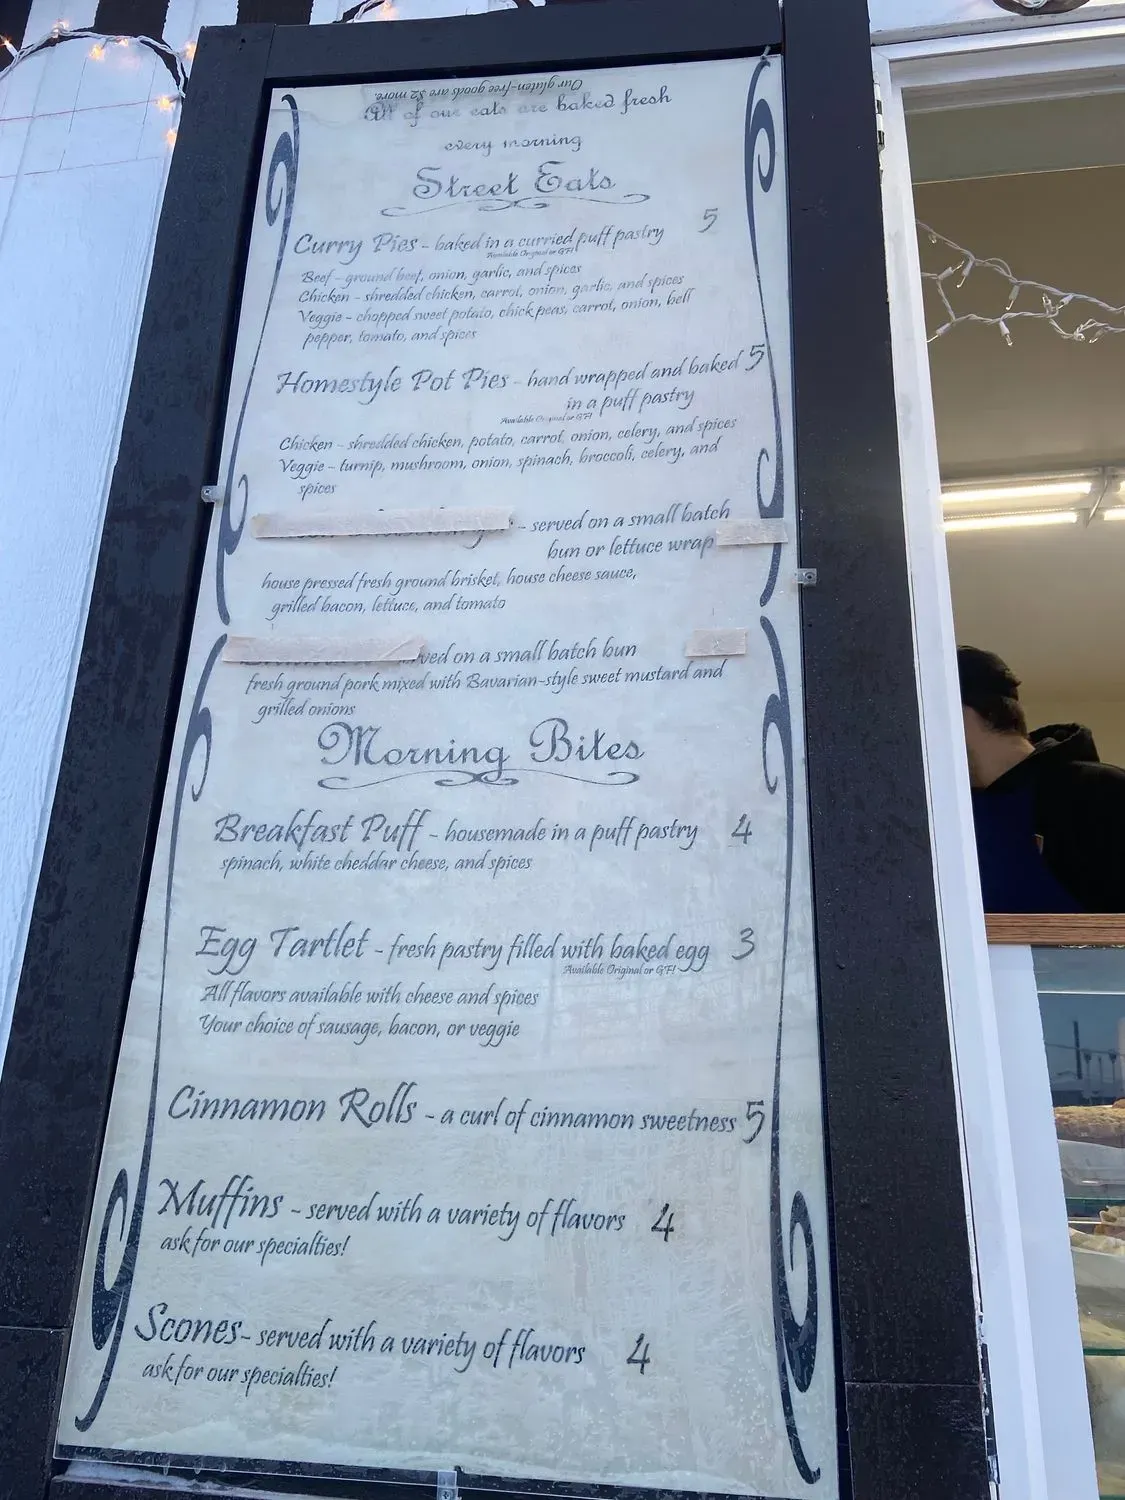 Our gluten-free goods are $2 more.
All of our eats are baked fresh
every morning
Street Eats
Curry Pies - baked in a curried puff pastry 5
Available Original or GF!
Beef - ground beef, onion, garlic, and spices
Chicken - shredded chicken, carrot, onion, garlic, and spices
Veggie - chopped sweet potato, chick peas, carrot, onion, bell
pepper, tomato, and spices
Homestyle Pot Pies - hand wrapped and baked 5
in a puff pastry
Available Original or GF!
Chicken - shredded chicken, potato, carrot, onion, celery, and spices
Veggie - turnip, mushroom, onion, spinach, broccoli, celery, and
spices
- served on a small batch
bun or lettuce wrap
house pressed fresh ground brisket, house cheese sauce,
grilled bacon, lettuce, and tomato
ved on a small batch bun
fresh ground pork mixed with Bavarian-style sweet mustard and
grilled onions
Morning Bites
Breakfast Puff - housemade in a puff pastry 4
spinach, white cheddar cheese, and spices
Egg Tartlet - fresh pastry filled with baked egg 3
Available Original or GF!
All flavors available with cheese and spices
Your choice of sausage, bacon, or veggie
Cinnamon Rolls - a curl of cinnamon sweetness 5
Muffins - served with a variety of flavors 4
ask for our specialties!
Scones - served with a variety of flavors 4
ask for our specialties!